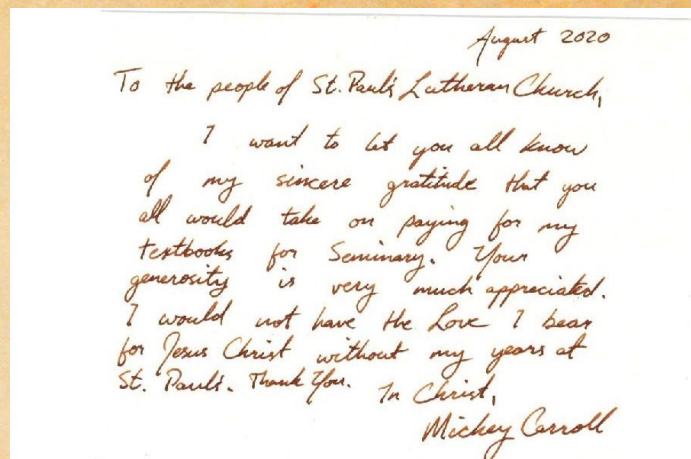 August 2020
To the people of St. Paul's Lutheran Church,
I want to let you all know
of my sincere gratitude that you
all would take on paying for my
textbooks for Seminary. Your
generosity is very much appreciated.
I would not have the Love I bear
for Jesus Christ without my years at
St. Paul's. Thank You.
In Christ,
Mickey Carroll